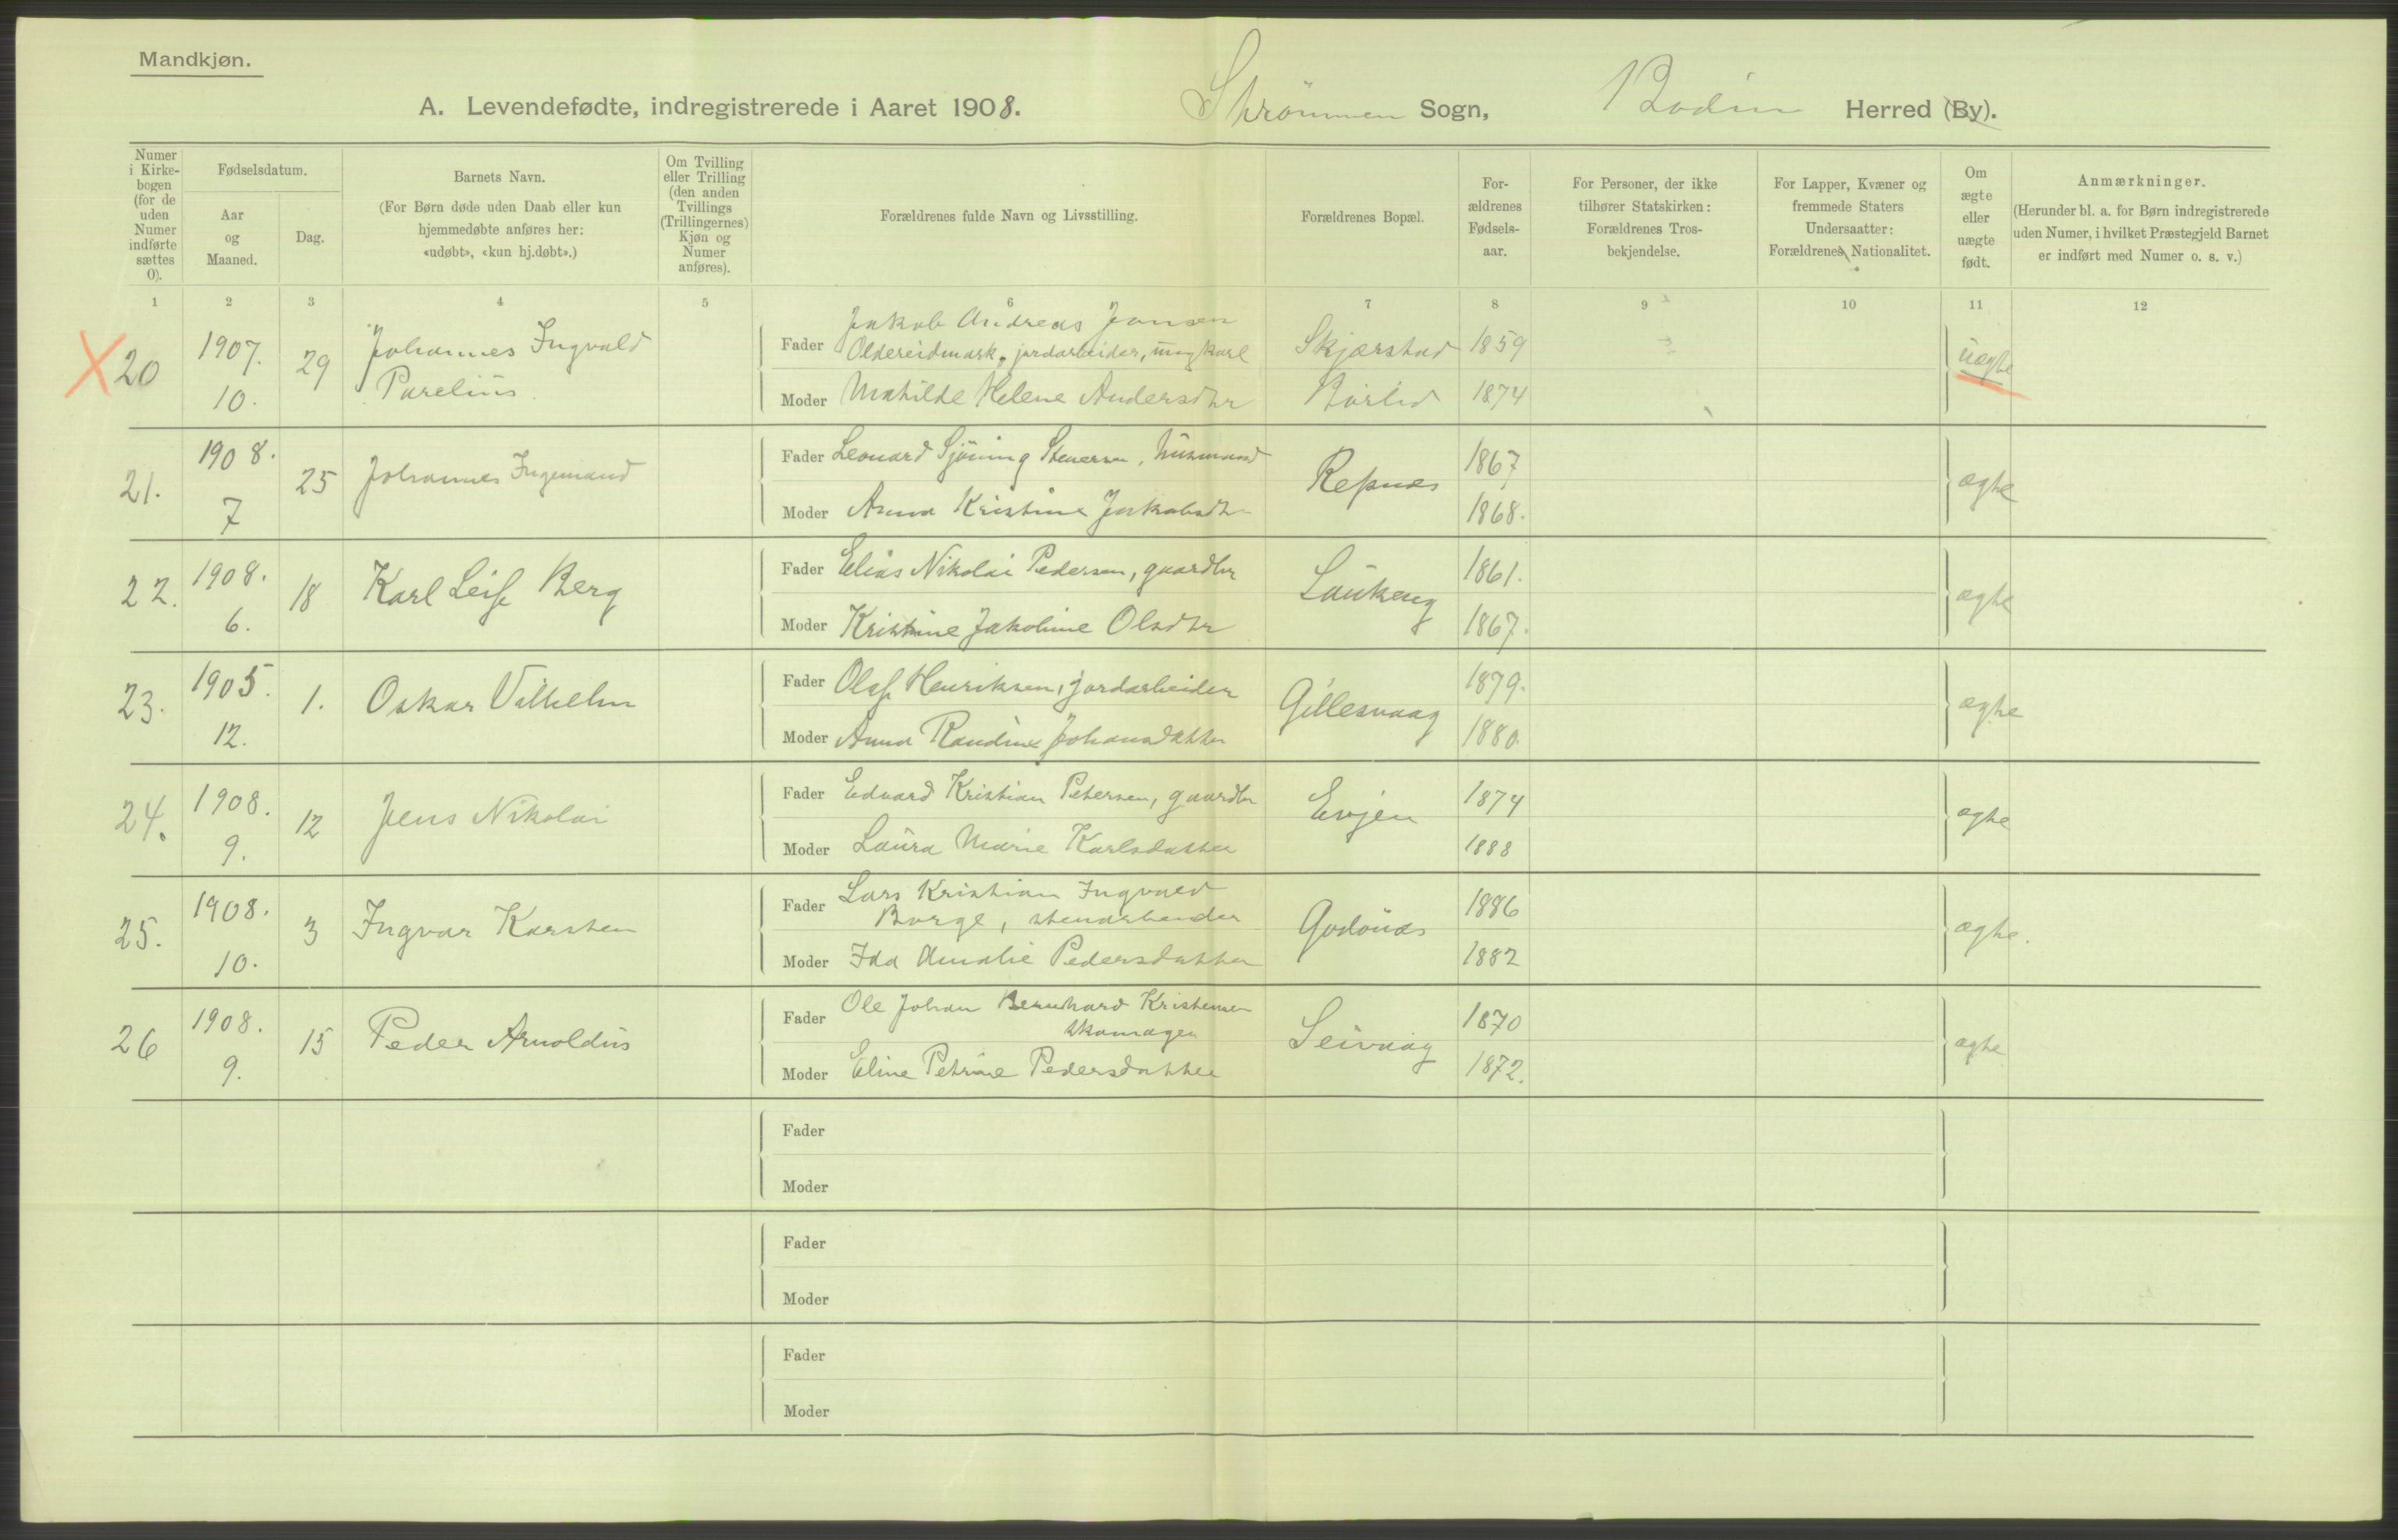 Mandkjøn.
A. Levendefødte, indregistrerede i Aaret 1908. Strömmen Sogn, Bodin Herred (By).
Numer i Kirkebogen (for de uden Numer indførte sættes 0).
Fødselsdatum.
Aar og Maaned.
Dag.
Barnets Navn.
(For Børn døde uden Daab eller kun hjemmedøbte anføres her: «udøbt», «kun hj.døbt».)
Om Tvilling eller Trilling (den anden Tvillings (Trillingernes) Kjøn og Numer anføres).
Forældrenes fulde Navn og Livsstilling.
Forældrenes Bopæl.
Forældrenes Fødselsaar.
For Personer, der ikke tilhører Statskirken: Forældrenes Trosbekjendelse.
For Lapper, Kvæner og fremmede Staters Undersaatter: Forældrenes Nationalitet.
Om ægte eller uægte født.
Anmærkninger.
(Herunder bl. a. for Børn indregistrerede uden Numer, i hvilket Præstegjeld Barnet er indført med Numer o. s. v.)
1 2 3 4 5 6 7 8 9 10 11 12
X 20 1907. 10. 29 Johannes Ingvald Parelius
Fader Jakob Andreas Jansen
Oldereidmark, jordarbeider, ungkarl Skjærstad 1859
Moder Mathilde Helene Andersdtr 1874 uægte
21. 1908. 7 25 Johannes Ingemand
Fader Leonard Sjöning Stenersen, husmand Repnæs 1867
Moder Anna Kristine Jakobsdtr 1868. ægte
22. 1908. 6. 18 Karl Leif Berg
Fader Elias Nikolai Pedersen, gaardbr Laukeng 1861.
Moder Kristine Jakobine Olsdtr 1867. ægte
23. 1905. 12. 1. Oskar Vilhelm
Fader Olaf Henriksen, jordarbeider Gillesvaag 1879.
Moder Anna Randine Johansdatter 1880. ægte
24. 1908. 9. 12 Jens Nikolai
Fader Edvard Kristian Petersen, gaardbr Evjen 1874
Moder Laura Marie Karlsdatter 1888 ægte
25. 1908. 10. 3 Ingvar Karsten
Fader Lars Kristian Ingvald
Borge, stenarbeider Godönæs 1886
Moder Ida Amalie Pedersdatter 1882 ægte.
26 1908. 9. 15 Peder Arnoldus
Fader Ole Johan Bernhard Kristensen
skomager Seivaag 1870
Moder Eline Petrine Pedersdatter 1872. ægte
Fader
Moder
Fader
Moder
Fader
Moder